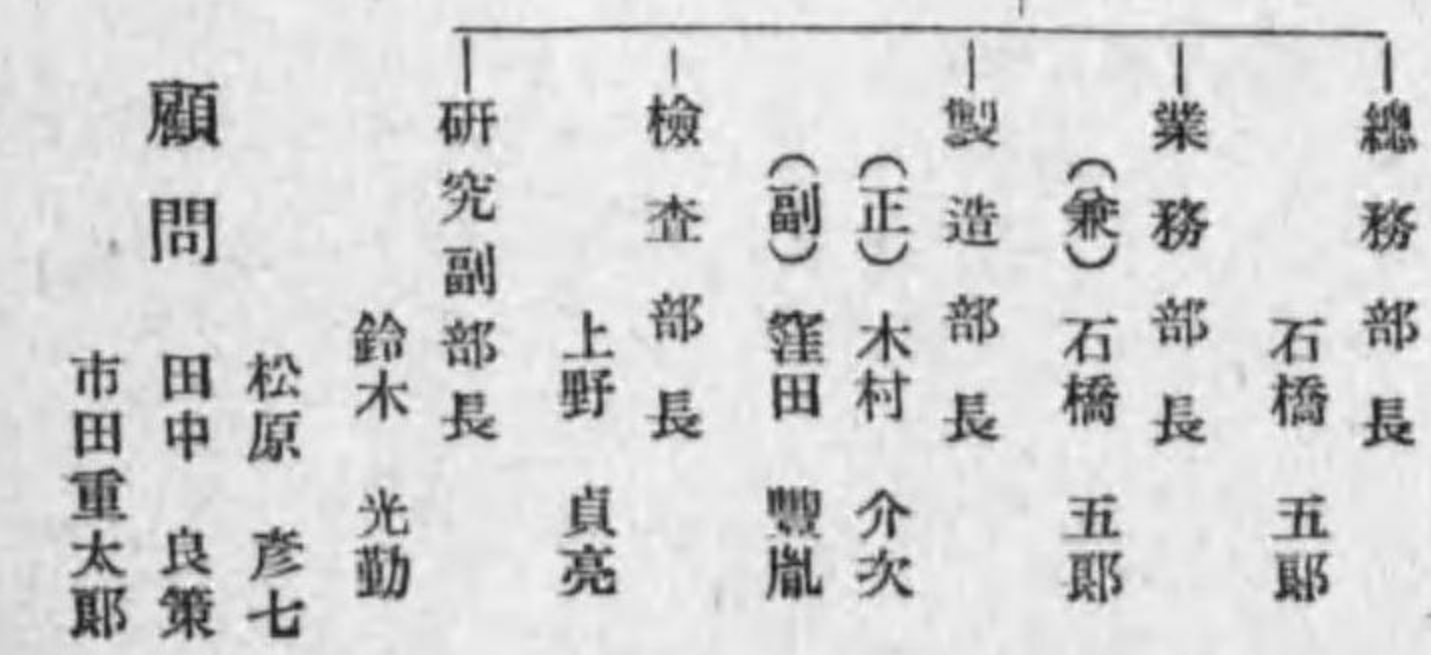 總務部長
石橋 五郞
業務部長
（兼）石橋 五郞
製造部長
（正）木村 介次
（副）窪田 豐胤
檢査部長
上野 貞亮
研究副部長
鈴木 光勤
顧問
松原 彦七
田中 良策
市田重太郞